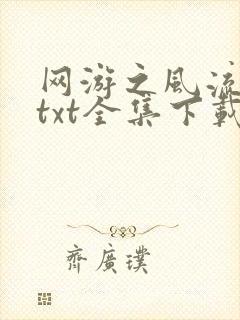 网游之风流
txt全集下載
齐廣璞